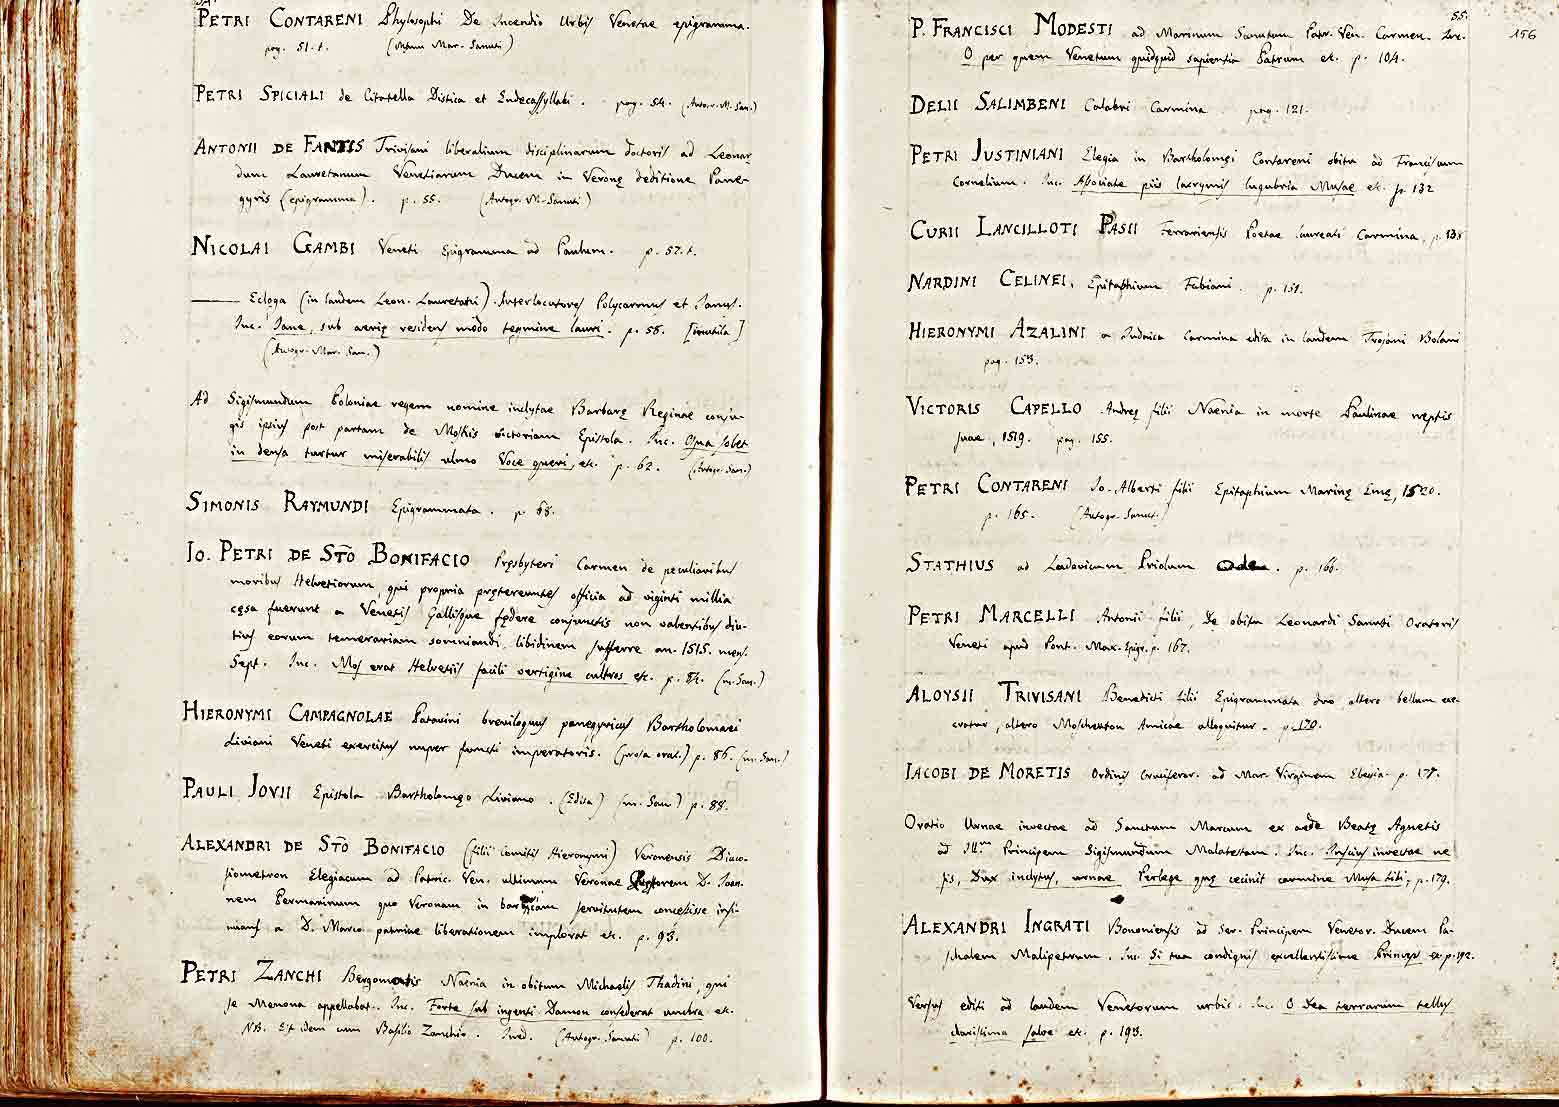 PETRI CONTARENI Phylosophi De Incendio Urbis Venetae epigramma.
pag. 51. t. (Manu Mar. Sanuti)
PETRI SPICIALI de Citatella Distica et Endecassyllabi. pag. 54. (Autogr. M. San.)
ANTONII DE FANTIS Trivisani liberalium disciplinarum doctoris ad Leonar
dum Lauretanum Venetiarum Ducem in Veronę deditione Pane-
gyris (epigramma). p. 55. (Autogr. M. Sanuti)
NICOLAI GAMBI Veneti Epigramma ad Paulum. p. 57. t.
Ecloga (in laudem Leon. Lauretani). Interlocutores Polycarmus et Janus.
Inc. Jane, sub aerię residens modo tegmine lauri. p. 58. [inutila]
(Autogr. Mar. San.)
Ad Sigismundum Poloniae regem nomine inclytae Barbarę Reginae conju-
gis ipsius post partam de Moskis victoriam Epistola. Inc. Qua solet
in densa turtur miserabilis ulmo Voce queri, etc. p. 62. (Autogr. San.)
SIMONIS RAYMUNDI Epigrammata. p. 68.
IO. PETRI DE STO BONIFACIO Pręsbyteri Carmen de peculiaribus
moribus Helvetiorum, qui propria prętereuntes officia ad viginti millia
cęsa fuerunt a Venetis Gallisque fędere conjunctis non valentibus diu-
tius eorum temerariam somniandi libidinem sufferre an. 1515. mens.
Sept. Inc. Mos erat Helvetiis facili vertigine cultros etc. p. 84. (m. San.)
HIERONYMI CAMPAGNOLAE Patavini breviloquus panegyricus Bartholomaei
Liviani Veneti exercitus nuper functi imperatoris. (prosa orat.) p. 86. (m. San.)
PAULI JOVII Epistola Bartholomęo Liviano. (Edita) (m. San.) p. 88.
ALEXANDRI DE STO BONIFACIO (filii Comitis Hieronymi) Veronensis Diaco-
siometron Elegiacum ad Patric. Ven. ultimum Veronae Pręstorem D. Joan.
nem Permarinum quo Veronam in barbaricam servitutem concessisse insi-
nuans a D. Marco patriae liberationem implorat etc. p. 93.
PETRI ZANCHI Bergomatis Naenia in obitum Michaelis Thadini, qui
se Menona appellabat. Inc. Forte sub ingenti Damon consederat umbra etc.
NB. Est idem cum Basilio Zanchio. Ined. (Autogr. Sanuti) p. 100.
55.
156
P. FRANCISCI MODESTI ad Marinum Sanutum Patr. Ven. Carmen. Inc.
O per quem Venetum quidquid sapientia Patrum etc. p. 104.
DELII SALIMBENI Calabri Carmina pag. 121.
PETRI JUSTINIANI Elegia in Bartholomęi Contareni obitu ad Franciscum
Cornelium. Inc. Associate piis lacrymis lugubria Musae etc. p. 132
CURII LANCILLOTI PASII Ferrariensis Poetae laureati Carmina, p. 138
NARDINI CELINEI, Epitaphium Fabiani. p. 151.
HIERONYMI AZALINI a Judaica Carmina edita in laudem Trojani Bolani
pag. 153.
VICTORIS CAPELLO Andreę filii Naenia in morte Paulinae neptis
suae, 1519. pag. 155.
PETRI CONTARENI Jo. Alberti filii Epitaphium Marinę Emę, 1520.
p. 165. (Autogr. Sanuti)
STATHIUS ad Ludovicum Priolum Odae. p. 166.
PETRI MARCELLI Antonii filii, De obitu Leonardi Sanuti Oratoris
Veneti apud Pont. Max. Epigr. p. 167.
ALOYSII TRIVISANI Benedicti filii Epigrammata duo, altero bellum exe-
cratur, altero Moschettam Amicae alloquitur. p. 170.
IACOBI DE MORETIS Ordinis Cruciferor. ad Mar. Virginem Elegia. p. 177.
Oratio Urnae invectae ad Sanctum Marcum ex aede Beatę Agnetis
ad Illum Principem Sigismundum Malatestam. Inc. Inscius invectae ne
sis, Dux inclytus, urnae Perlege quę cecinit carmine Musa tibi, p. 179.
ALEXANDRI INGRATI Bononiensis ad Ser. Principem Venetor. Ducem Pa-
schalem Malipetrum. Inc. Si tua condignis excellentissime Princeps etc. p. 192.
Versus editi ad laudem Venetorum urbis. Inc. O Dea terrarum tellus
clarissima salve etc. p. 193.